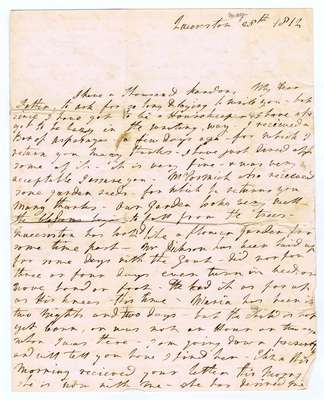 may
Queenston 28th 1812
I have a thousand pardons, My dear
Father, to ask for so long delaying to write you - but
since I have got to be a Housekeeper I have also
got to be lazy in the writing way. I received a
box of asparagus a few days ago - for which I
return you many thanks - I have just dined off
some of it - it is very fine - & was very
acceptable I assure you - Mr also received
some garden seeds - for which he returns you
many thanks. - Our Garden looks very well
the begin to fall from the trees -
Queenston has looked like a flower Garden for
some time past - Mr Dickson has been laid up
for some Days with the Gout - did not for
three or four days even turn in bed or
move hand or foot - He had it as far up
as His knees this time - Maria has been in
two Nights and two Days - but the Child is not
yet born, or was not an Hour or two ago
when I was there - I am going down presently
and will tell you how I find her - Eliza this
Morning received your letter this
she is now with me - she has desired me